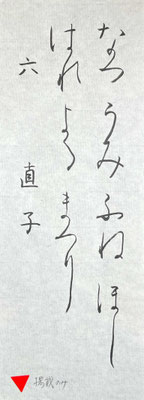 なつ うみ ふね ほし
はれ よる まつり
六 直子
掲載のみ